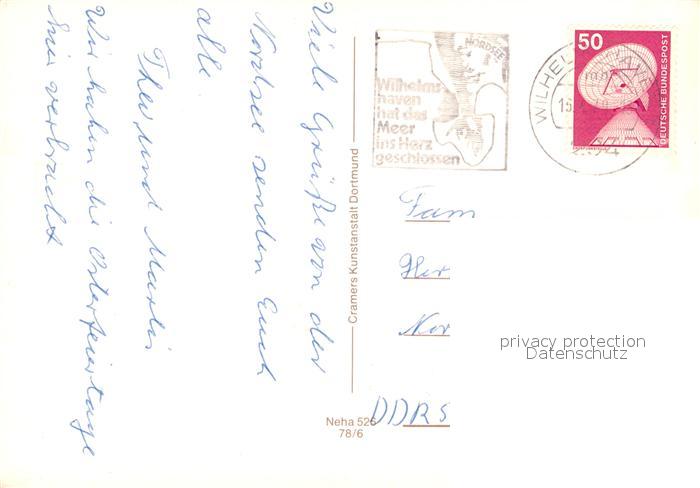 Viele Grüße von der
Nordsee senden Euch
alle.
Theo und
Wir haben die Osterfeiertage
hier verbracht
Cramers Kunstanstalt Dortmund
Neha 526
78/6
NORDSEE
Wilhelms-
haven
hat das
Meer
ins Herz
geschlossen
WILHEL
50
DEUTSCHE BUNDESPOST
Fam
Her
Nor
DDR
privacy protection
Datenschutz